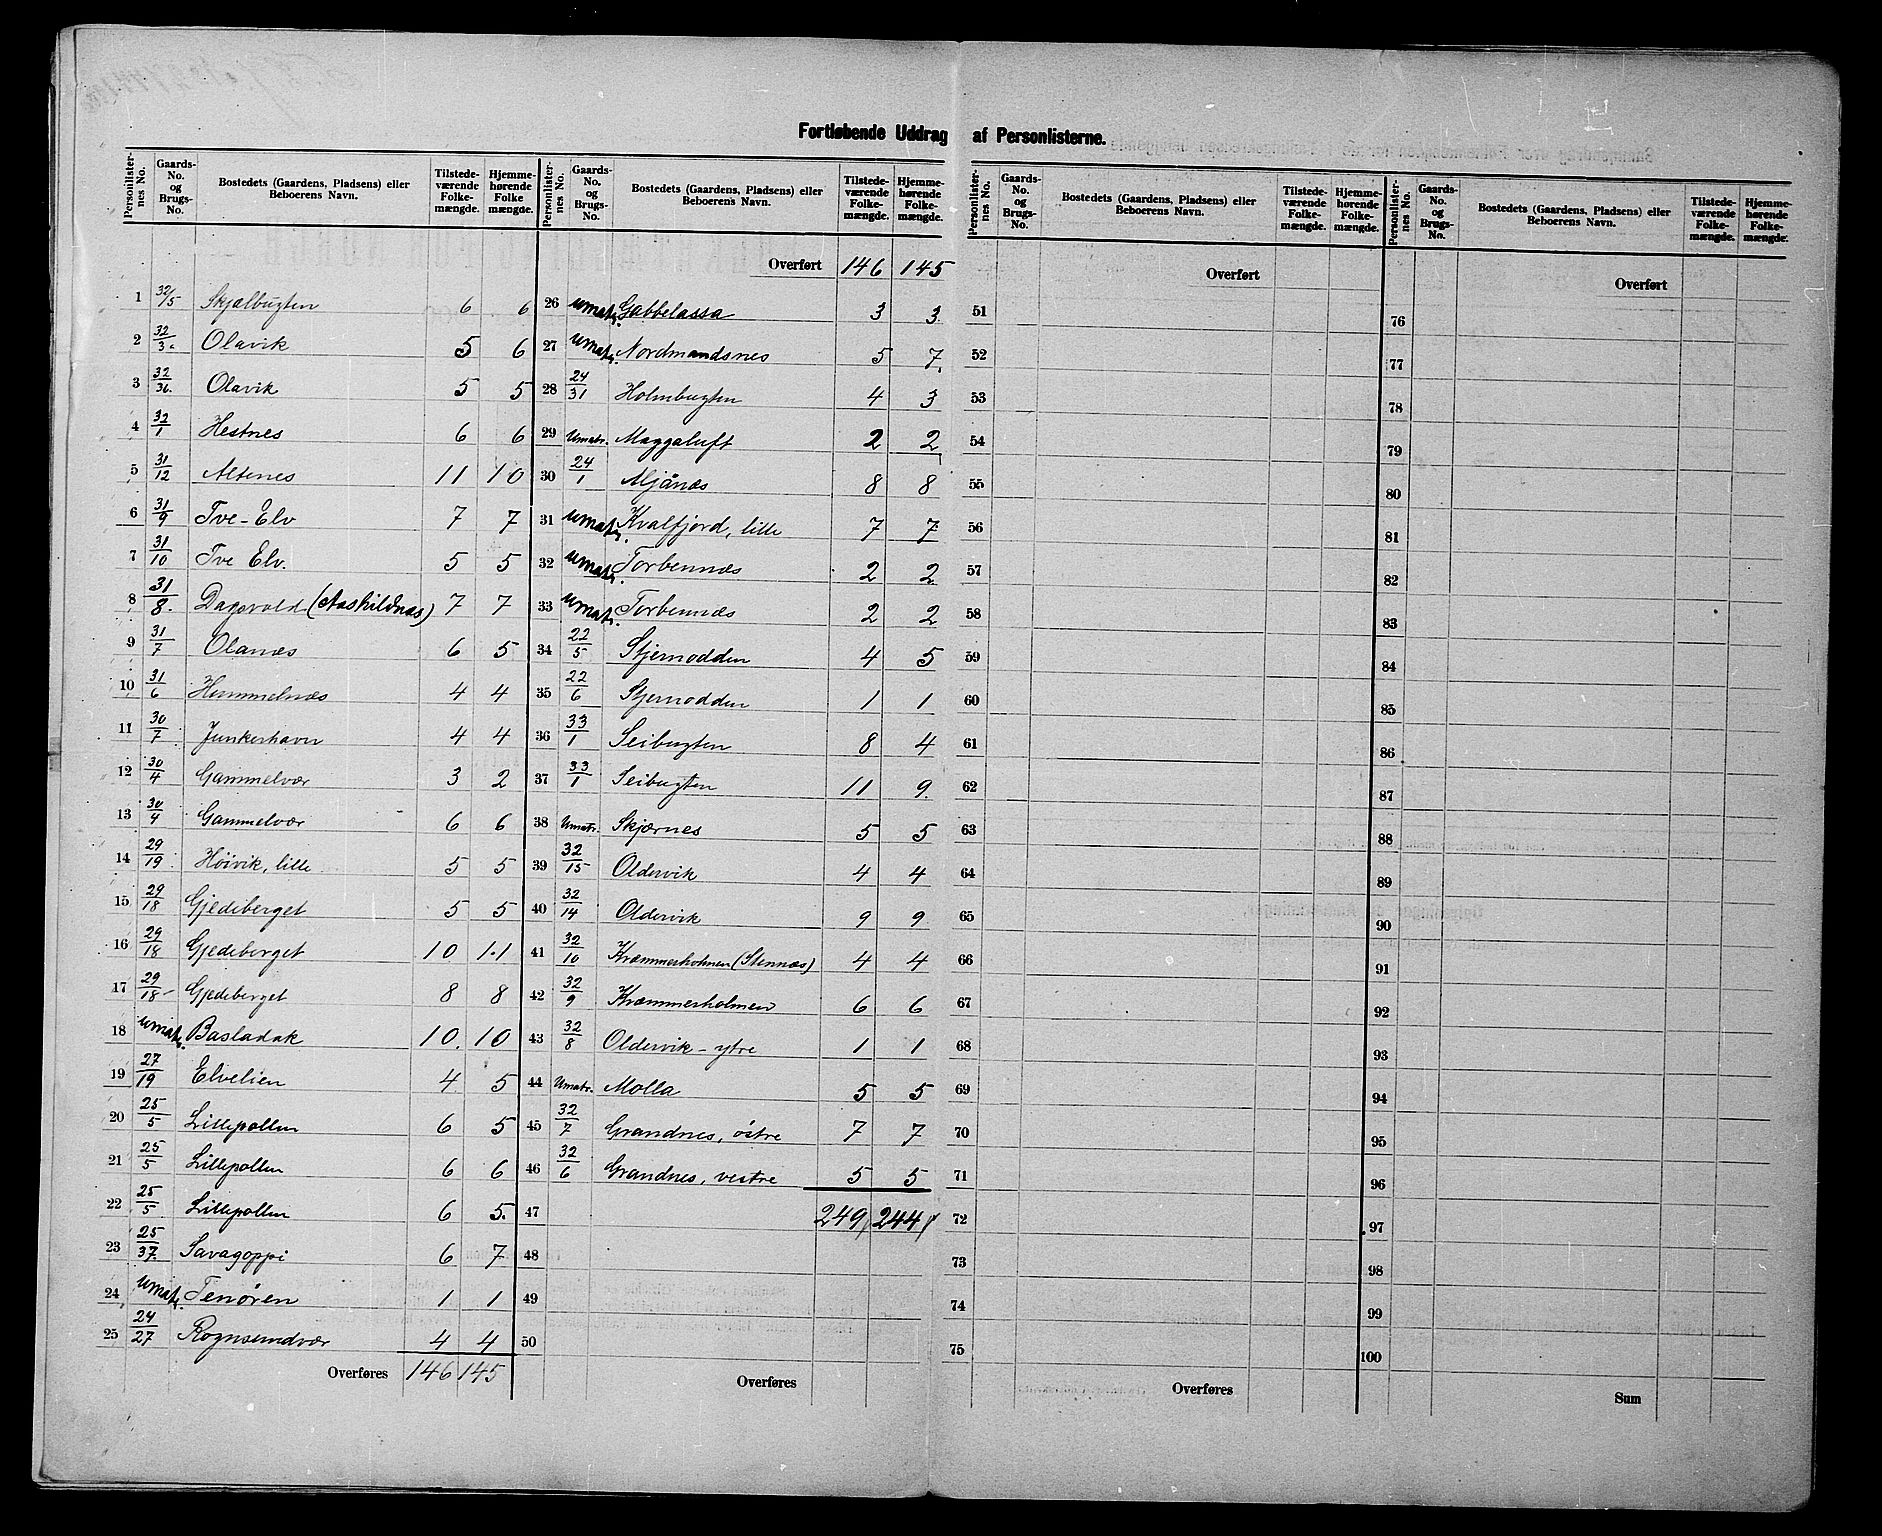 Fortløbende Uddrag af Personlisterne.
Personlister-nes No. | Gaards-No. og Brugs-No. | Bostedets (Gaardens, Pladsens) eller Beboerens Navn. | Tilstede-værende Folke-mængde. | Hjemme-hørende Folke mængde.
1 32/5 Skjælbugten 6 6
2 32/3. Olavik 5 6
3 32/36. Olavik 5 5
4 32/1 Hestnes 6 6
5 31/12 Altenes 11 10
6 31/9 Tve-Elv 7 7
7 31/10 Tve Elv. 5 5
8 31/8. Dagsvold (Aashildnæs) 7 7
9 31/7 Olanæs 6 5
10 31/6 Hummelnæs 4 4
11 30/7 Junkerhavn 4 4
12 30/4 Gammelvær 3 2
13 30/4 Gammelvær 6 6
14 29/19 Høivik, lille 5 5
15 29/18 Gjedeberget 5 5
16 29/18 Gjedeberget 10 11
17 29/18 Gjedeberget 8 8
18 umatr. Basladak 10. 10
19 27/19 Elvelien 4 5
20 25/5 Lillepollen 6 5
21 25/5 Lillepollen 6 6
22 25/5 Lillepollen 6 5.
23 25/37. Savagoppi 6 7
24 umatr. Tenøren 1 1
25 24/27 Rognsundvær 4 4
Overføres 146 145
Personlister-nes No. | Gaards-No. og Brugs-No. | Bostedets (Gaardens, Pladsens) eller Beboerens Navn. | Tilstede-værende Folke-mængde. | Hjemme-hørende Folke-mængde.
Overført 146 145
26 umatr. Gabbelassa 3 3
27 umatr. Nordmandsnes 5 7.
28 24/31 Holmbugten 4 3
29 Umatr. Maggaluft 2 2
30 24/1 Mjånæs 8 8
31 umatr. Kvalfjord, lille 7 7
32 umatr. Torbennæs 2 2
33 umatr. Torbennæs 2 2
34 22/5 Stjernodden 4 5
35 22/6 Stjernodden 1 1
36 33/1 Seibugten 8 4
37 33/1 Seibugten 11 9.
38 Umatr. Skjærnes 5 5
39 32/15 Oldervik 4 4
40 32/14 Oldervik 9 9
41 32/10 Kræmmerholmen (Stennæs) 4 4
42 32/9 Kræmmerholmen 6 6
43 32/8 Oldervik-ytre 1 1
44 Umatr. Molla 5 5
45 32/7 Grandnes, østre 7 7
46 32/6 Grandnes, vestre 5 5
47 249 244
48
49
50
Overføres
Personlister-nes No. | Gaards-No. og Brugs-No. | Bostedets (Gaardens, Pladsens) eller Beboerens Navn. | Tilstede-værende Folke-mængde. | Hjemme-hørende Folke-mængde.
Overført
51
52
53
54
55
56
57
58
59
60
61
62
63
64
65
66
67
68
69
70
71
72
73
74
75
Overføres
Personlister-nes No. | Gaards-No. og Brugs-No. | Bostedets (Gaardens, Pladsens) eller Beboerens Navn. | Tilstede-værende Folke-mængde. | Hjemme-hørende Folke-mængde.
Overført
76
77
78
79
80
81
82
83
84
85
86
87
88
89
90
91
92
93
94
95
96
97
98
99
100
Sum